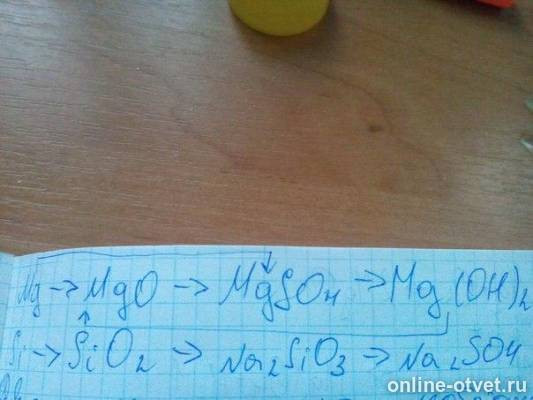 Mg → MgO → MgSO4 → Mg(OH)2
Si → SiO2 → Na2SiO3 → Na2SO4
online-otvet.ru